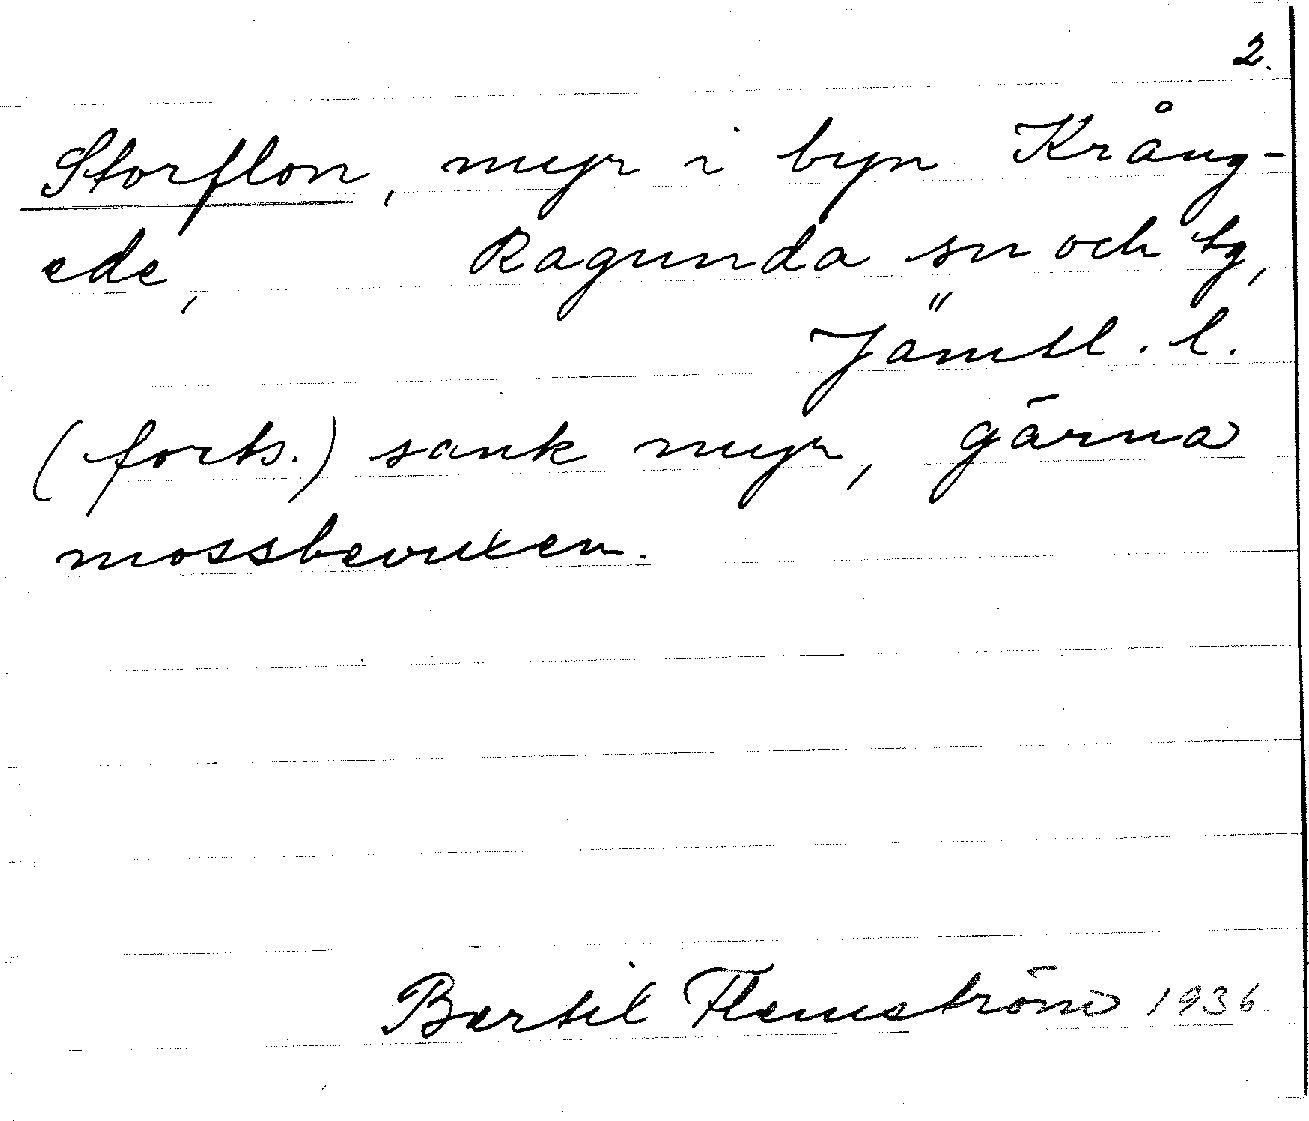 2.
Storflon, myr i byn Krång-
ede, Ragunda sn och tg,
Jämtl. l.
(forts.) sank myr, gärna
mossbevuxen.
Bertil Flemström 1936